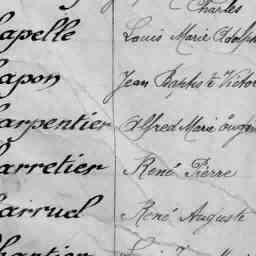 Charles
apelle Louis Marie Adolph
apon Jean Baptiste Victor
arpentier Alfred Marie Eugèn
arretier René Pierre
arruel René Auguste
hantier